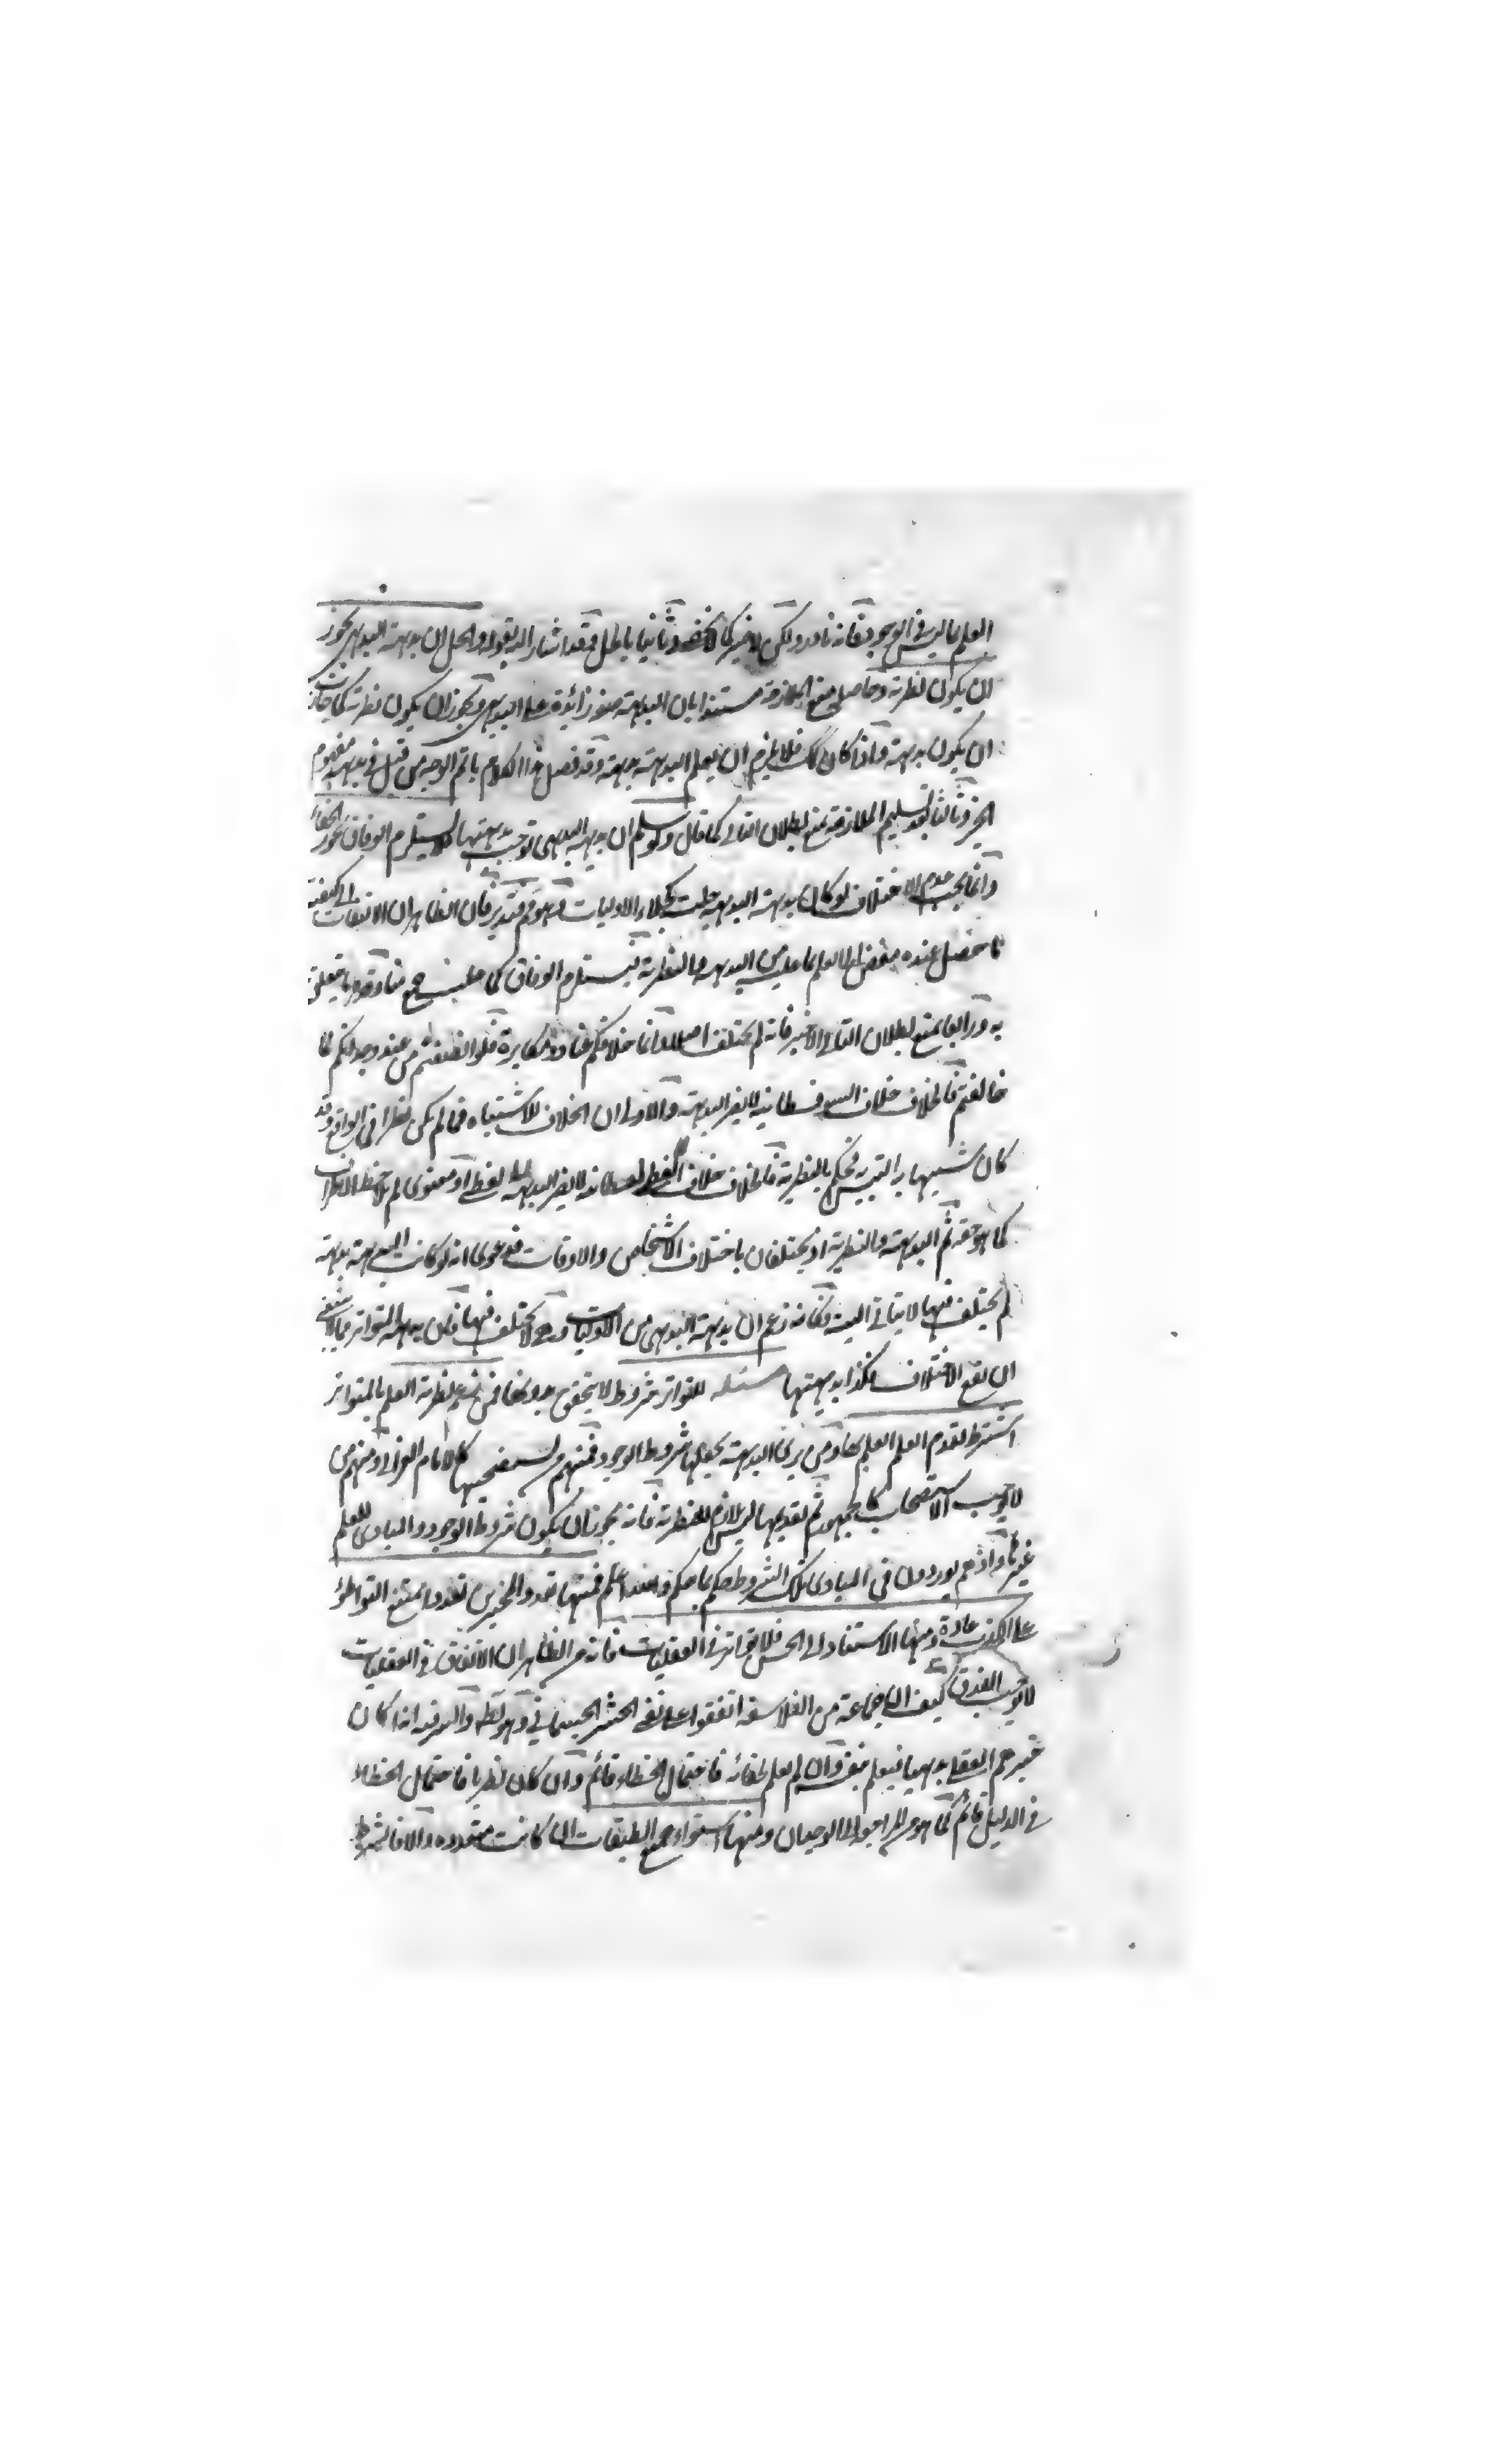 العلم بما ليس في الوجود فانه نادر ولكن لا ضير كما لا يخفى وثانيا باطل وقد اشار اليه بقوله والحل ان بديهة البديهي يجوز
ان يكون نظرية وحاصله منع الملازمة مستندا بان البديهة صفة زائدة على البديهي ويجوز ان يكون نظرية كما جاز
ان يكون بديهة واذا كان كك فلا يلزم ان يعلم البديهة بديهة وقد فصل هذا الكلام باتم الوجه من قبل في بديهة مفهوم
الخبر وثالثا بعد تسليم الملازمة يمنع بطلان التالي كما قال ولو سلم ان بديهة البديهي توجب بديهتها لا يستلزم الوفاق لجواز الخفاء
وانما يجب عدم الاختلاف لو كان بديهة البديهي جلية كجلاء الاوليات وهو مم فتدبر فان الظاهر ان الالتفات الى كيفية
ما حصل عنده مفض الى العلم بما عليه من البديهة والنظرية فيستلزم الوفاق كما
به ورابعا يمنع بطلان التالي الاخير فانه لم يختلف اصلا وانما خلافكم عناد ومكابرة فلو انصفتم من عند وجدانكم لما
خالفتم فالخلاف خلاف السوفسطائية لا يضر البديهة والاولى ان الخلاف للاشتباه فما لم يكن نظرا في الواقع وقد
كان شبيها به التبس فحكم بالنظرية فالخلاف خلاف لا يضر البديهة لفظي او معنوي لم يلاحظ الاطراف
كما هو حقه ثم البديهة والنظرية اذ يختلفان باختلاف الاشخاص والاوقات فدعوى انه لو كانت البديهة بديهة
لم يختلف فيها لا يتاتى البتة وكانه زعم ان بديهة البديهي من الاوليات وهي لا يختلف فيها فان بديهة المتواتر مما لا ينبغي
ان يقع الاختلاف فكذا بديهتها مسئلة للتواتر شروط لا يتحقق بدونها فمن زعم نظرية العلم بالمتواتر
اشترط تقدم العلم بها ومن يرى البديهة يجعلها شروط الوجود فمنهم من يستصحبها كالامام الغزالي ومنهم من
لا يوجب الاستصحاب كالجمهور ثم تقديمها ليس بلازم للنظرية فانه يجوز ان يكون شروط الوجود والمبادي للعلم
غيرها واذ هم يوردون في المبادي تلك الشروط حكم بما حكم والله اعلم فمنها تعدد المخبرين تعددا يمتنع التواطؤ
على الكذب عادة ومنها الاستناد الى الحس فلا تواتر في العقليات فانه من الظاهر ان الاتفاق في العقليات
لا يوجب الصدق كيف الى جماعة من الفلاسفة اتفقوا على نفي الحشر الجسماني وهو بط والسر فيه اذا كان
خبرهم العقلي بديهيا فيعلم بنفسه وان لم يعلم لخفائه فاحتمال الخطاء قائم وان كان نظريا فاحتمال الخطاء
في الدليل قائم كما هو المراجع الى الوجدان ومنها استواء جميع الطبقات ان كانت متعددة والا فالشرط